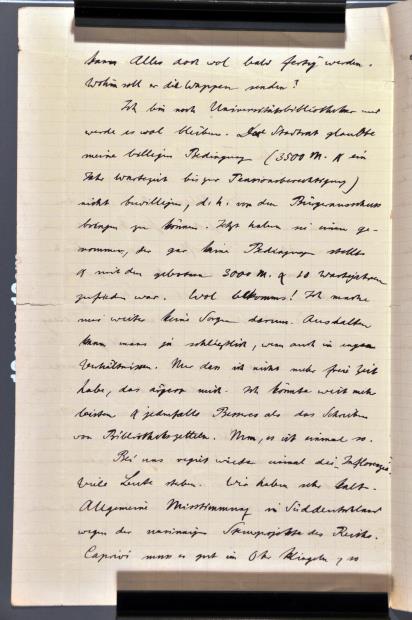 kann Alles doch wol bald fertig werden.
Wohin soll er die Wappen senden?
Ich bin noch Universitätsbibliothekar und
werde es wol bleiben. Der Stadtrat glaubte
meine billigen Bedingung (3500 M. & ein
Jahr Wartezeit bis zur Pensionsberechtigung)
nicht bewilligen, d. h. von den Bürgerausschuss
bringen zu können. Jetzt haben sie einen ge-
nommen, der gar keine Bedingungen stellte
& mit den gebotenen 3000 M. & 10 Wartejahren
zufrieden war. Wol bekomms! Ich mache
mir weiter keine Sorgen darum. Aushalten
kann mans ja schliesslich, wenn auch in engen
Verhältnissen. Nur dass ich nicht mehr freie Zeit
habe, das ärgert mich. Ich könnte weit mehr
leisten & jedenfalls Besseres als das Schreiben
von Bibliothekszetteln. Nun, es ist einmal so.
Bei uns regiert wieder einmal die Influenza.
Viele Leute sterben. Wir haben sehr kalt.
Allgemeine Misstimmung in Süddeutschland
wegen der unsinnigen Steuerprojekte des Reichs.
Caprivi muss es gut im Ohr klingeln, so